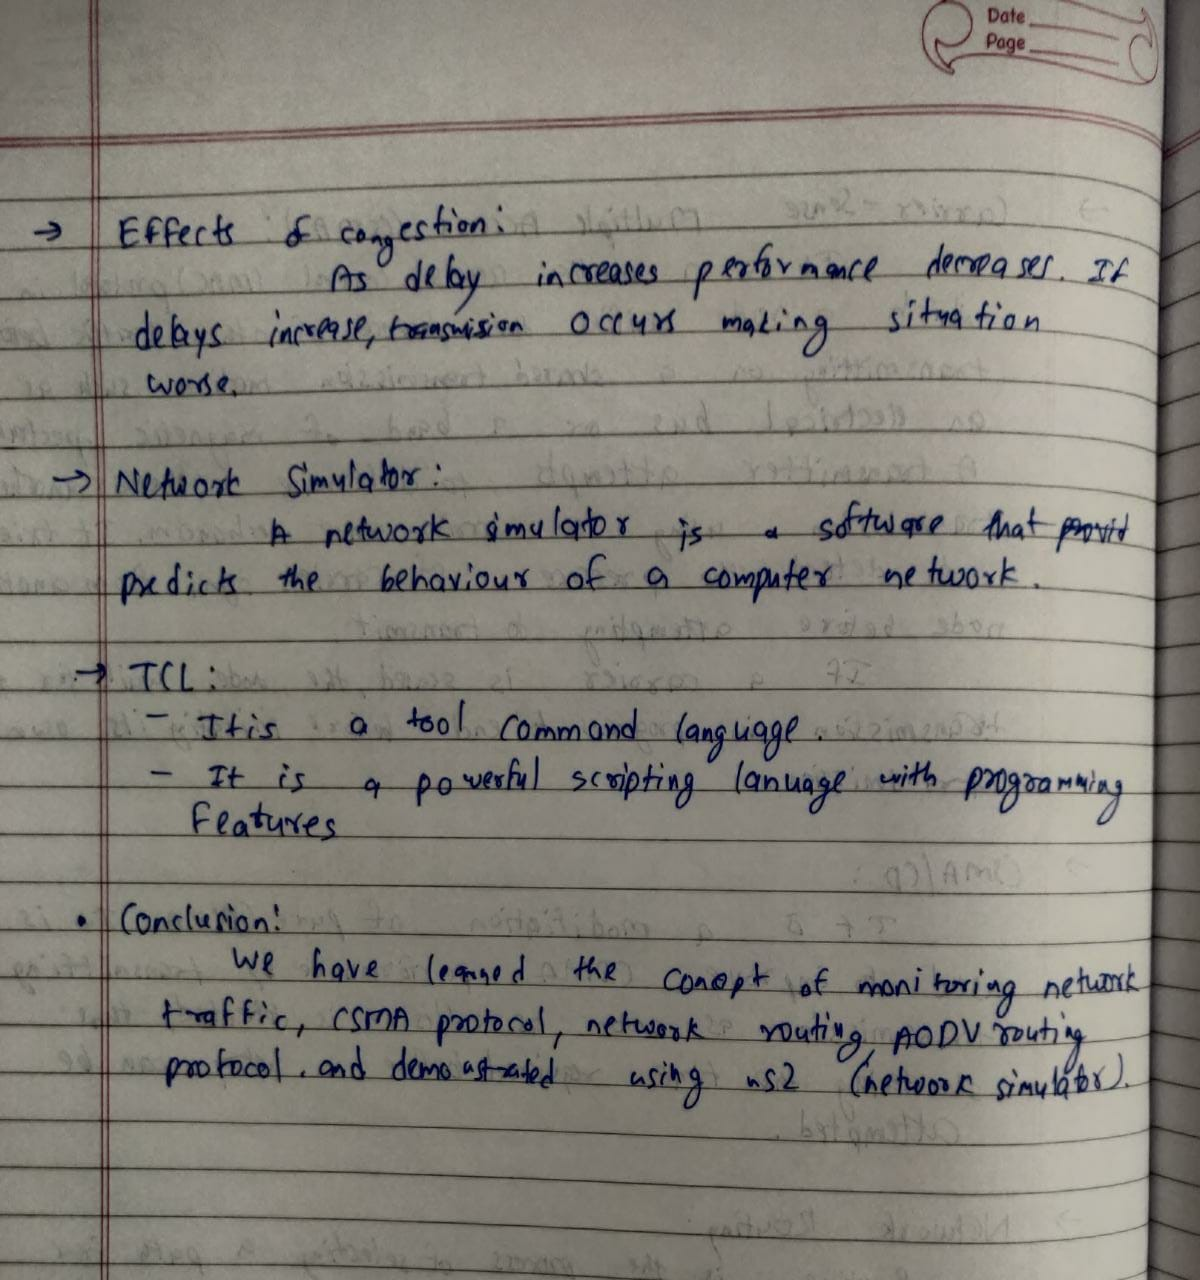 Date
Page
→ Effects of congestion:
As delay increases performance decreases. If
delays increase, transmision occurs making situation
worse.
→ Network Simulator:
A network simulator is a software that provid
predicts the behaviour of a computer network.
→ TCL:
- It is a tool command language.
- It is a powerful scripting lanuage with programming
Features
• Conclusion:
We have learned the conept of monitoring network
traffic, CSMA protocol, network routing, AODV routing
protocol. and demostrated using ns2 (network simulator).